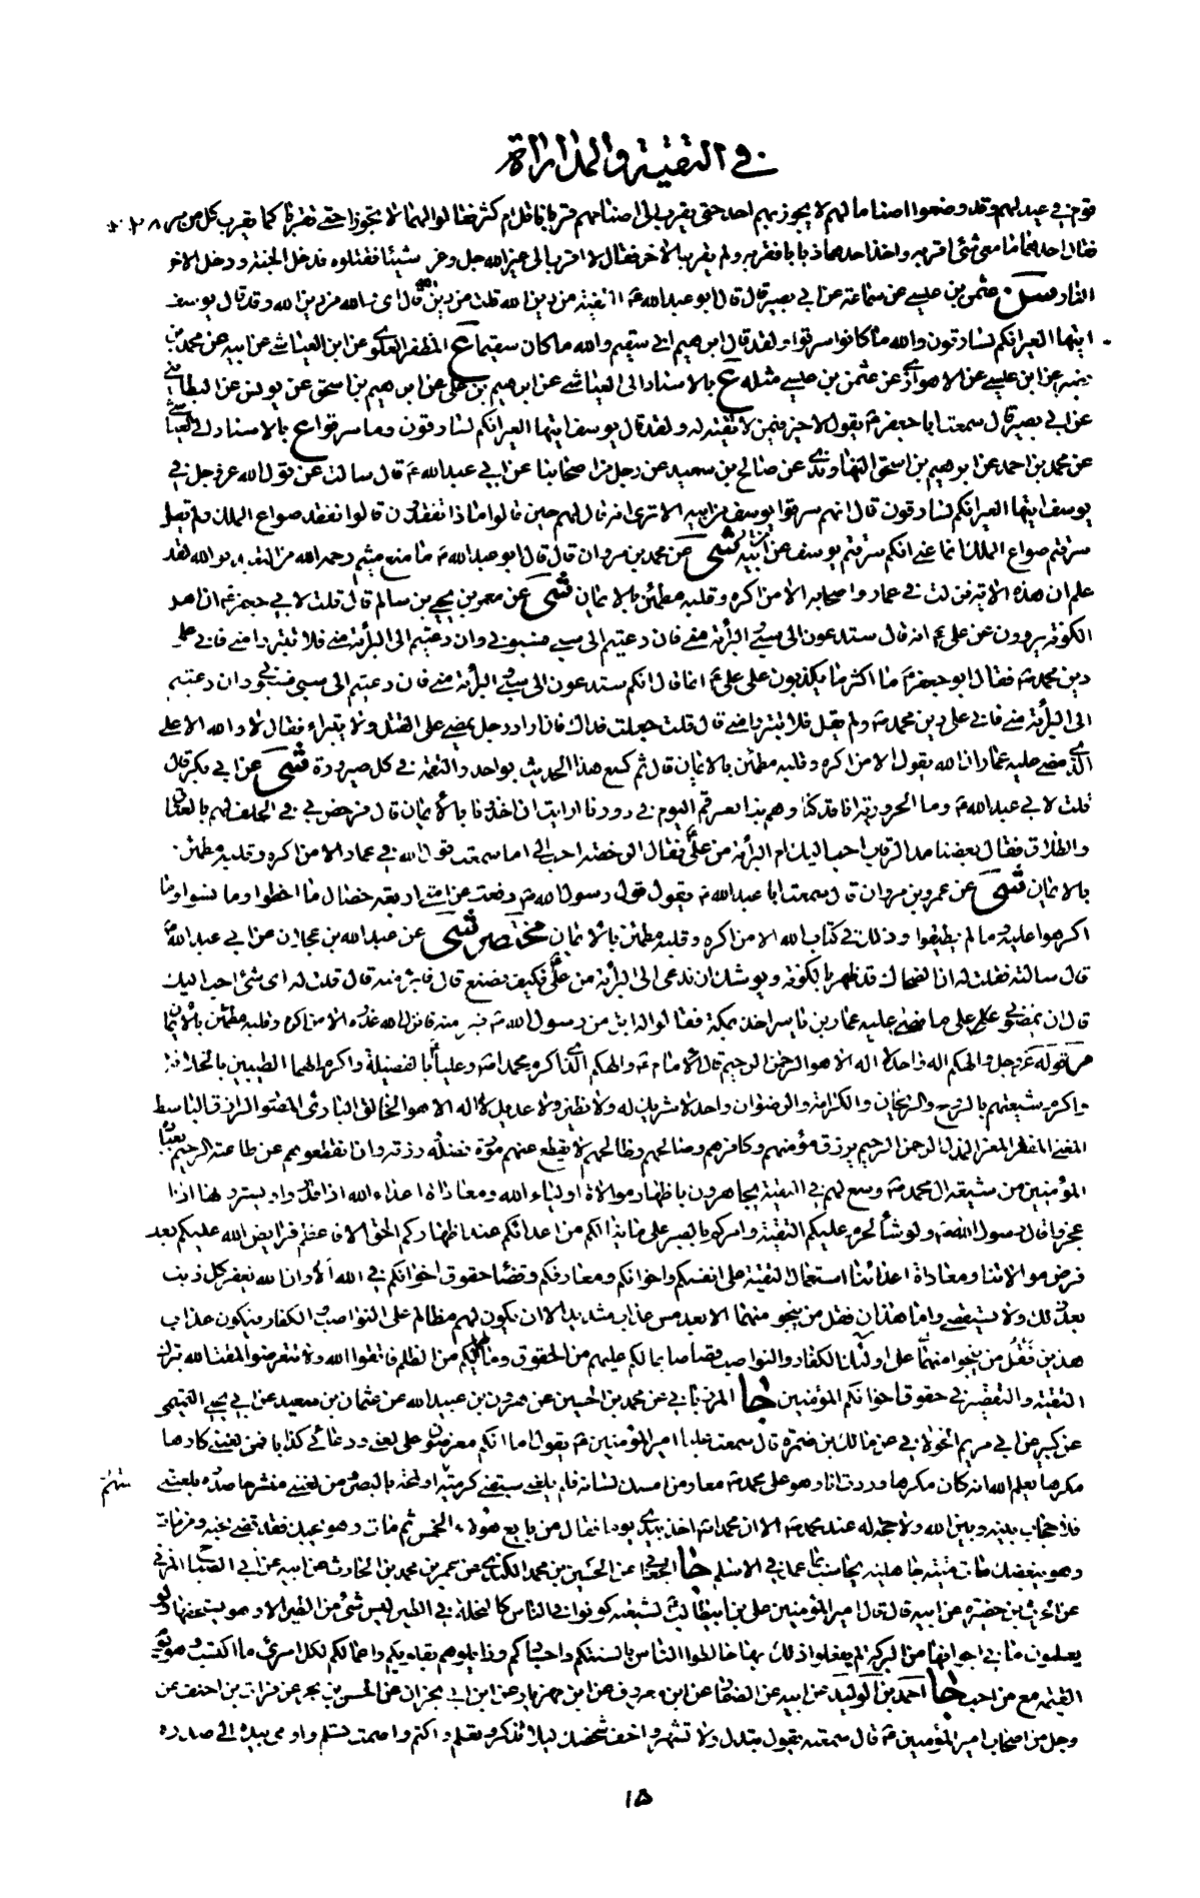 في التقية والمداراة
قوم في عيد لهم وقد وضعوا اصناما لهم لا يجوز بهم احد حتى يقرب الى اصنامهم قربانا قل ام كثر فقالوا لهما لا تجوزا حتى تقربا كما يقرب كل من مر
فقال احدهما ما معي شئ اقربه واخذ احدهما ذبابا فقربه ولم يقرب الاخر فقال لا اقرب الى غير الله جل وعز شيئا فقتلوه فدخل الجنة ودخل الاخر
النار سن عثمن بن عيسى عن سماعة عن ابي بصير قال قال ابو عبد الله ع التقية من دين الله قلت من دين الله قال اي والله من دين الله وقد قال يوسف
ايتها العير انكم لسارقون والله ما كانوا سرقوا ولقد قال ابرهيم اني سقيم والله ما كان سقيما ع المظفر العلوي عن ابن العياشي عن ابيه عن محمد بن
نصير عن ابن عيسى عن الاهوازي عن عثمن بن عيسى مثله ع بالاسناد الى العياشي عن ابرهيم بن علي عن ابرهيم بن اسحق عن يونس عن البطائني
عن ابي بصير قال سمعت ابا جعفر ع يقول لا خير فيمن لا تقية له ولقد قال يوسف ايتها العير انكم لسارقون وما سرقوا ع بالاسناد الى العياشي
عن محمد بن احمد عن ابرهيم بن اسحق النهاوندي عن صالح بن سعيد عن رجل من اصحابنا عن ابي عبد الله ع قال سالت عن قول الله عز وجل في
يوسف ايتها العير انكم لسارقون قال انهم سرقوا يوسف من ابيه الا ترى انه قال لهم حين قالوا ماذا تفقدون قالوا نفقد صواع الملك ولم تقل
سرقتم صواع الملك انما عنى انكم سرقتم يوسف عن ابيه شى عن محمد بن مروان قال قال ابو عبد الله ع ما منع ميثم رحمه الله من التقية فوالله لقد
علم ان هذه الاية نزلت في عمار واصحابه الا من اكره وقلبه مطمئن بالايمان شى عن معمر بن يحيى بن سالم قال قلت لابي جعفر ع ان اهل
الكوفة يروون عن علي ع انه قال ستدعون الى سبي والبرائة مني فان دعيتم الى سبي فسبوني وان دعيتم الى البرائة مني فلا تتبرءوا مني فاني على
دين محمد ص فقال ابو جعفر ع ما اكثر ما يكذبون على علي ع انما قال انكم ستدعون الى سبي والبرائة مني فان دعيتم الى سبي فسبوني وان دعيتم
الى البرائة مني فاني على دين محمد ص ولم يقل فلا تتبرءوا مني قال قلت جعلت فداك فان اراد رجل يمضي على القتل ولا يتبراء فقال لا والله الا على
الذي مضى عليه عمار ان الله يقول الا من اكره وقلبه مطمئن بالايمان قال ثم كسع هذا الحديث بواحد والتقية في كل ضرورة شى عن ابي بكر قال
قلت لابي عبد الله ع وما الحرورية انا قد كنا وهم منا بعد فهم اليوم في دورنا ارايت ان اخذونا بالايمان قال فرخص لي في الحلف لهم بالعتاق
والطلاق فقال بعضنا مد الرقاب احب اليك ام البرائة من علي ع فقال الرخصة احب الي اما سمعت قول الله في عمار الا من اكره وقلبه مطمئن
بالايمان شى عن عمرو بن مروان قال سمعت ابا عبد الله ع يقول قال رسول الله ص رفعت عن امتي اربعة خصال ما اخطوا وما نسوا وما
اكرهوا عليه وما لم يطيقوا وذلك في كتاب الله الا من اكره وقلبه مطمئن بالايمان مختصر شى عن عبد الله بن عجلان عن ابي عبد الله ع
قال سالته فقلت له ان الضحاك قد ظهر بالكوفة ويوشك ان ندعى الى البرائة من علي ع فكيف نصنع قال فابرء منه قال قلت له اي شئ احب اليك
قال ان يمضي على ما مضى عليه عمار بن ياسر اخذ بمكة فقالوا له ابرء من رسول الله ص فبرء منه فانزل الله عذره الا من اكره وقلبه مطمئن بالايمان
م قوله عز وجل والهكم اله واحد لا اله الا هو الرحمن الرحيم قال الامام ع والهكم الذي اكرم محمدا ص وعليا ع بالفضيلة واكرم الهما الطيبين بالخلافة
واكرم شيعتهم بالروح والريحان والكرامة والرضوان واحد لا شريك له ولا نظير ولا عديل لا اله الا هو الخالق البارئ المصور الرازق الباسط
المغني المفقر المعز المذل الرحمن الرحيم يرزق مؤمنهم وكافرهم وصالحهم وطالحهم لا يقطع عنهم مواد فضله ورزقه وان انقطعوا هم عن طاعته الرحيم بعباده
المؤمنين من شيعة ال محمد ص وسع لهم في التقية يجاهرون باظهار موالاة اولياء الله ومعاداة اعداء الله اذا قدروا ويسترونها اذا
عجزوا قال رسول الله ص ولو شاء لحرم عليكم التقية وامركم بالصبر على ما ينالكم من اعدائكم عند اظهاركم الحق الا فاعظم فرايض الله عليكم بعد
فرض موالاتنا ومعاداة اعدائنا استعمال التقية على انفسكم واخوانكم ومعارفكم وقضاء حقوق اخوانكم في الله الا وان الله يغفر كل ذنب
بعد ذلك ولا يستقصي واما هذان فقل من ينجو منهما الا بعد مس عذاب شديد الا ان يكون لهم مظالم على النواصب الكفار فيكون عذاب
هذين على اولئك الكفار والنواصب قصاصا بما لكم عليهم من الحقوق وما لهم اليكم من الظلم فاتقوا الله ولا تتعرضوا لمقت الله بترك
التقية والتقصير في حقوق اخوانكم المؤمنين جا المرزباني عن محمد بن الحسين عن هرون بن عبيد الله عن عثمان بن سعيد عن ابي يحيى التميمي
عن كثير عن ابي مريم الخولاني عن مالك بن ضمرة قال سمعت عليا امير المؤمنين ع يقول اما انكم معرضون على لعني ودعائي كذابا فمن لعنني كارها
مكرها يعلم الله انه كان مكرها وردت انا وهو على محمد ص معا ومن امسك لسانه فلم يلعني سبقني كرمية سهم او لمحة بالبصر ومن لعنني منشرحا صدره بلعنتي
فلا حجاب بينه وبين الله ولا حجة له عند محمد ص الا ان محمدا ص اخذ بيدي يوما فقال من بايع هؤلاء الخمس ثم مات وهو يحبك فقد قضى نحبه ومن مات
وهو يبغضك مات ميتة جاهلية يحاسب بما عمل في الاسلام جا الجعابي عن الحسين بن محمد الكندي عن عمر بن محمد بن الحارث عن ابيه عن ابي الصباح المزني
عن ابيه قال قال امير المؤمنين علي بن ابيطالب ع لشيعته كونوا في الناس كالنحلة في الطير ليس شئ من الطير الا وهو يستخفها ولو
يعلمون ما في اجوافها من البركة لم يفعلوا ذلك بها خالطوا الناس بالسنتكم واجسادكم وزايلوهم بقلوبكم واعمالكم لكل امرئ ما اكتسب وهو يوم
القيمة مع من احب جا احمد بن الوليد عن ابيه عن الصفار عن ابن معروف عن ابن مهزيار عن ابن ابي نجران عن الحسن بن بحر عن فرات بن احنف عن
رجل من اصحاب امير المؤمنين ع قال سمعته يقول تبذل ولا تشهر واخف شخصك لئلا تذكر وتعلم واكتم واصمت تسلم واومى بيده الى صدره
١٥